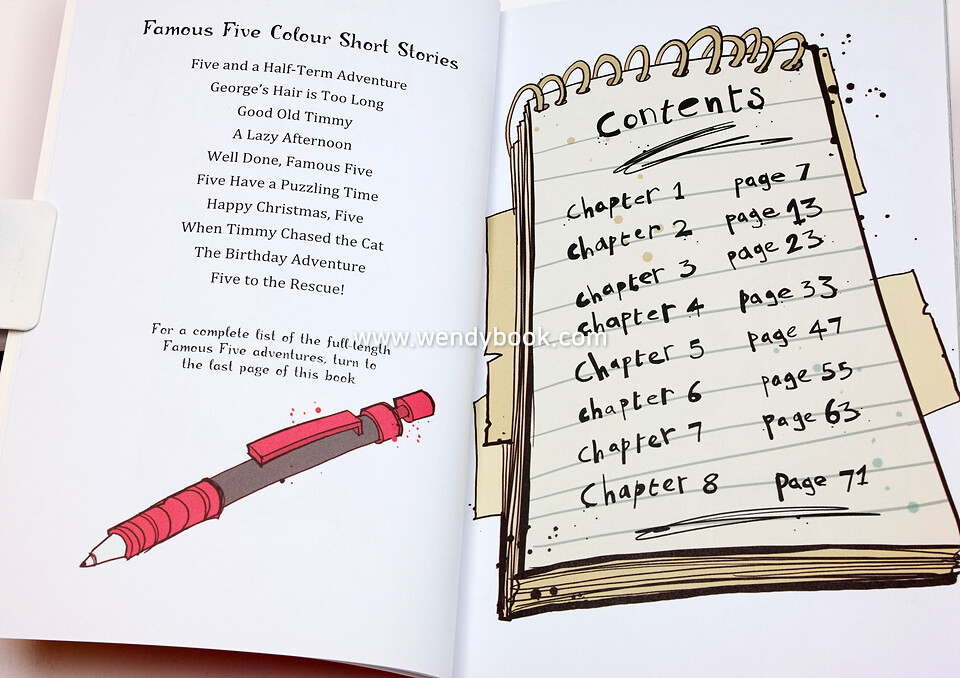 Famous Five Colour Short Stories
Five and a Half-Term Adventure
George's Hair is Too Long
Good Old Timmy
A Lazy Afternoon
Well Done, Famous Five
Five Have a Puzzling Time
Happy Christmas, Five
When Timmy Chased the Cat
The Birthday Adventure
Five to the Rescue!
For a complete list of the full-length
Famous Five adventures, turn to
the last page of this book
www.wendybook.com
Contents
Chapter 1 page 7
Chapter 2 page 13
Chapter 3 page 23
Chapter 4 page 33
Chapter 5 page 47
Chapter 6 page 55
Chapter 7 page 63
Chapter 8 page 71